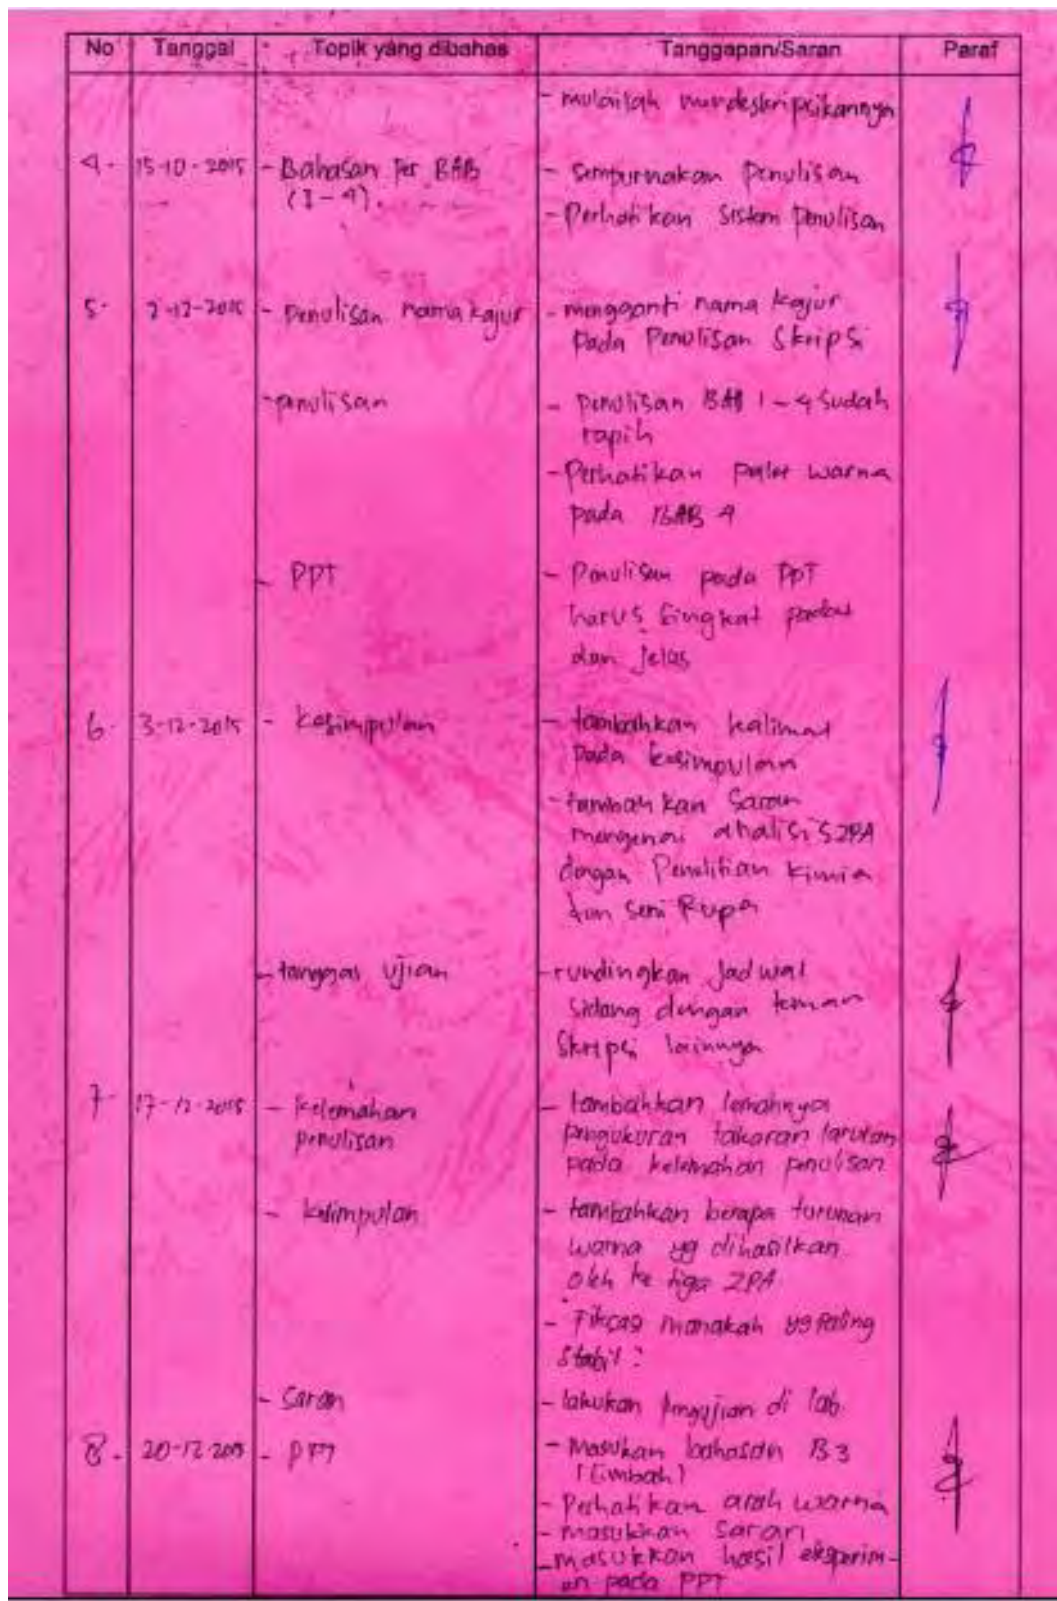 No Tanggal Topik yang dibahas Tanggapan/Saran Paraf
- mulailah mendeskripsikannya
4. 15-10-2015 - Bahasan per BAB - sempurnakan penulisan
(1-4). - Perhatikan sistem penulisan
5. 2-12-2015 - penulisan nama kajur - mengganti nama kajur
pada penulisan skripsi
- penulisan - penulisan BAB 1-4 sudah
rapih
- Perhatikan palet warna
pada BAB 4
- PPT - Penulisan pada PPT
harus singkat padat
dan jelas
6. 3-12-2015 - kesimpulan - tambahkan kalimat
pada kesimpulan
- tambahkan saran
mengenai analisis ZPA
dengan Penelitian kimia
dan seni Rupa
- tanggas ujian - rundingkan jadwal
sidang dengan teman
skripsi lainnya
7. 17-12-2015 - kelemahan - tambahkan lemahnya
penulisan pengukuran takaran larutan
pada kelemahan penulisan
- kesimpulan - tambahkan berapa turunan
warna yg dihasilkan
oleh ke tiga ZPA
- Fiksasi manakah yg paling
stabil?
- saran - lakukan pengujian di lab.
8. 20-12-2015 - PPT - Masukan bahasan B3
(Limbah)
- Perhatikan arah warna
- masukkan saran
- masukkan hasil eksperim-
en pada PPT